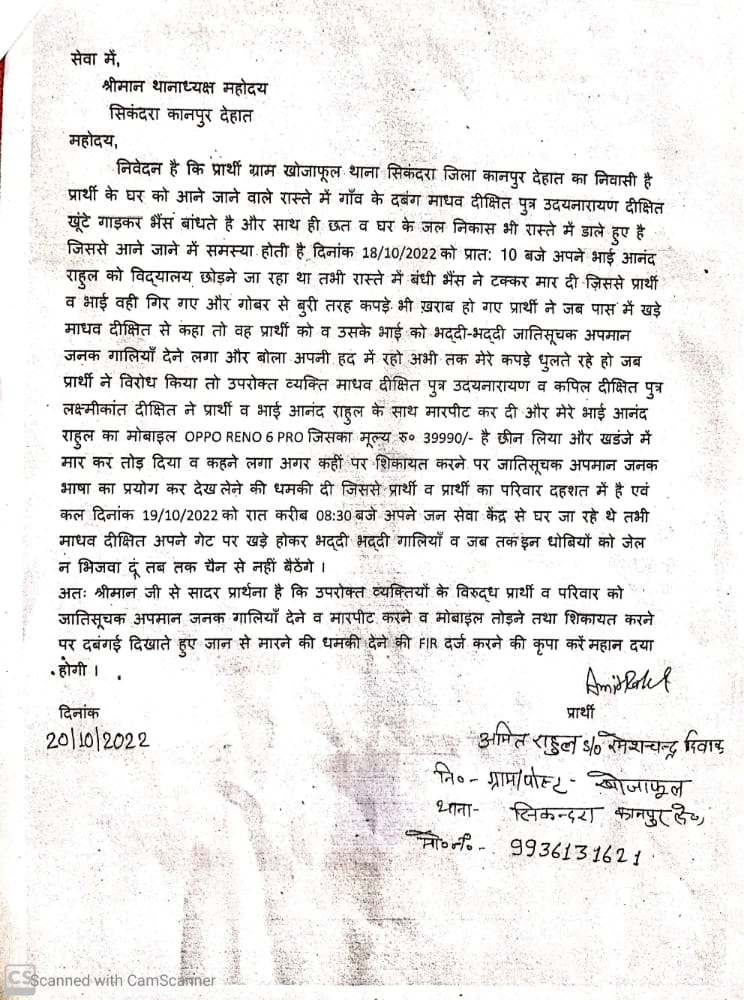 सेवा में,
श्रीमान थानाध्यक्ष महोदय
सिकंदरा कानपुर देहात
महोदय,
निवेदन है कि प्रार्थी ग्राम खोजाफूल थाना सिकंदरा जिला कानपुर देहात का निवासी है
प्रार्थी के घर को आने जाने वाले रास्ते में गाँव के दबंग माधव दीक्षित पुत्र उदयनारायण दीक्षित
खूंटे गाड़कर भैंस बांधते है और साथ ही छत व घर के जल निकास भी रास्ते में डाले हुए है
जिससे आने जाने में समस्या होती है दिनांक 18/10/2022 को प्रात: 10 बजे अपने भाई आनंद
राहुल को विद्यालय छोड़ने जा रहा था तभी रास्ते में बंधी भैंस ने टक्कर मार दी जिससे प्रार्थी
व भाई वही गिर गए और गोबर से बुरी तरह कपड़े भी ख़राब हो गए प्रार्थी ने जब पास में खड़े
माधव दीक्षित से कहा तो वह प्रार्थी को व उसके भाई को भद्दी-भद्दी जातिसूचक अपमान
जनक गालियाँ देने लगा और बोला अपनी हद में रहो अभी तक मेरे कपड़े धुलते रहे हो जब
प्रार्थी ने विरोध किया तो उपरोक्त व्यक्ति माधव दीक्षित पुत्र उदयनारायण व कपिल दीक्षित पुत्र
लक्ष्मीकांत दीक्षित ने प्रार्थी व भाई आनंद राहुल के साथ मारपीट कर दी और मेरे भाई आनंद
राहुल का मोबाइल OPPO RENO 6 PRO जिसका मूल्य रु० 39990/- है छीन लिया और खडंजे में
मार कर तोड़ दिया व कहने लगा अगर कहीं पर शिकायत करने पर जातिसूचक अपमान जनक
भाषा का प्रयोग कर देख लेने की धमकी दी जिससे प्रार्थी व प्रार्थी का परिवार दहशत में है एवं
कल दिनांक 19/10/2022 को रात करीब 08:30 बजे अपने जन सेवा केंद्र से घर जा रहे थे तभी
माधव दीक्षित अपने गेट पर खड़े होकर भद्दी भद्दी गालियाँ व जब तक इन धोबियों को जेल
न भिजवा दूं तब तक चैन से नहीं बैठेंगे ।
अतः श्रीमान जी से सादर प्रार्थना है कि उपरोक्त व्यक्तियों के विरुद्ध प्रार्थी व परिवार को
जातिसूचक अपमान जनक गालियाँ देने व मारपीट करने व मोबाइल तोड़ने तथा शिकायत करने
पर दबंगई दिखाते हुए जान से मारने की धमकी देने की FIR दर्ज करने की कृपा करें महान दया
होगी ।
दिनांक
प्रार्थी
20/10/2022
अमित राहुल s/o रमेशचन्द्र दिवाकर
नि०- ग्राम/पोस्ट - खोजाफूल
थाना- सिकन्दरा कानपुर दे०,
मो०नं०- 9936131621
CS Scanned with CamScanner